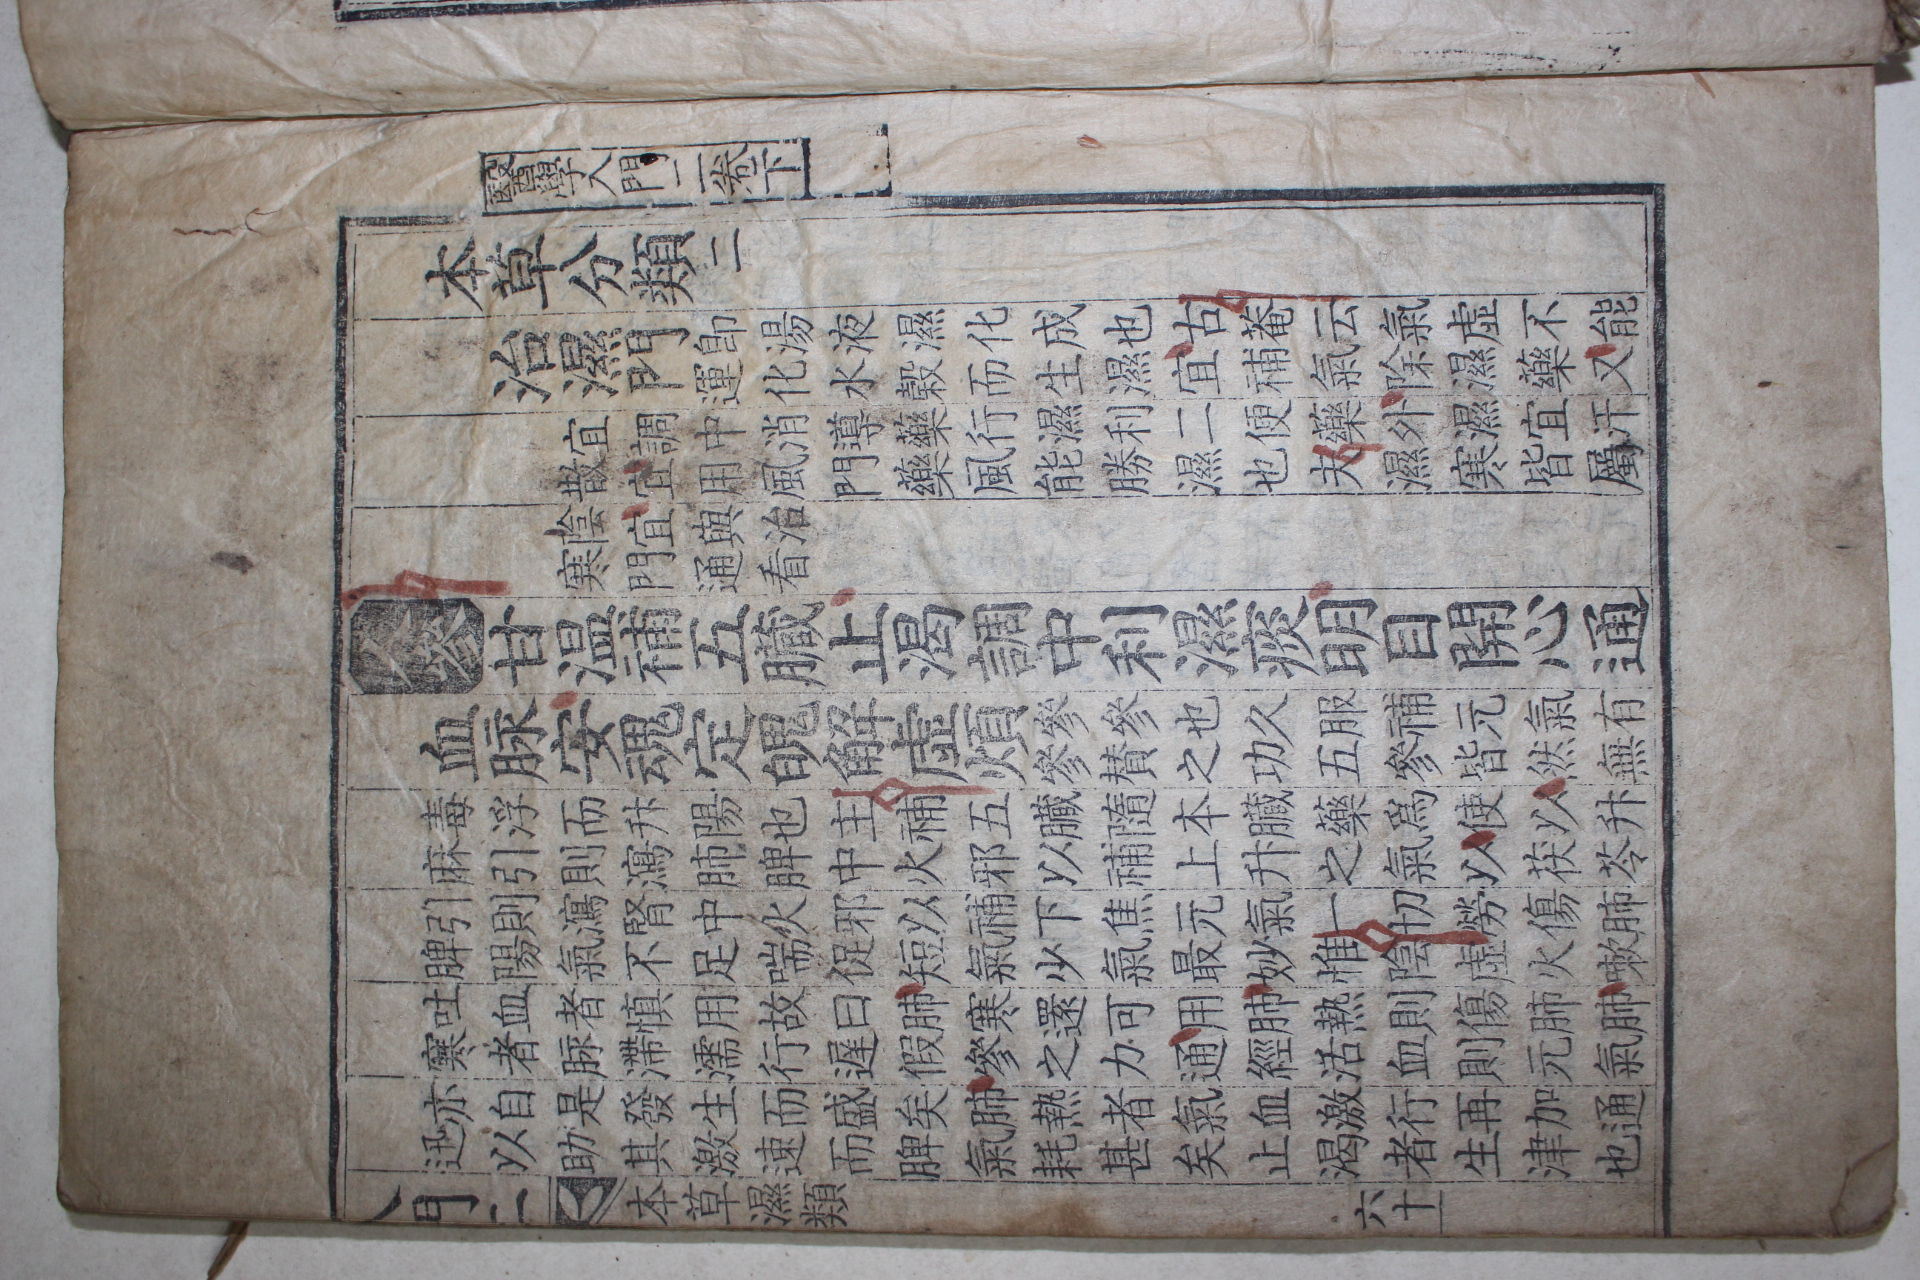 醫學入門二卷下
本草分類二
治濕門
卽湯液濕化成也古菴云氣虛不能
運化水穀而生濕宜補氣除濕藥又
宜調中消導藥行濕利二便藥外濕宜汗
散宜用風門藥風能勝濕也夫濕寒皆屬
陰宜與治
寒門通看
人參甘温補五臟止渴調中利濕痰明目開心通
血脉安魂定魄解虛煩
參參也久服補元氣有
參賛之功五參皆然無
毒浮而升陽也主補五臟隨本臟藥爲使以升
麻引則瀉肺脾中火邪以補上升之氣以茯苓
引則瀉腎中火邪以補下焦元氣一切勞傷肺
脾陽氣不足喘促短氣少氣最妙惟陰虛火嗽
吐血者愼用故曰肺寒還可用肺熱則傷肺肺
寒者脉滯濡行遲假參之力通經活血則元氣
亦自是發生而盛矣肺熱者氣血激行再加通
迅以助其激速而脾氣耗甚矣止渴者生津也
入門二
本草濕類
六十一